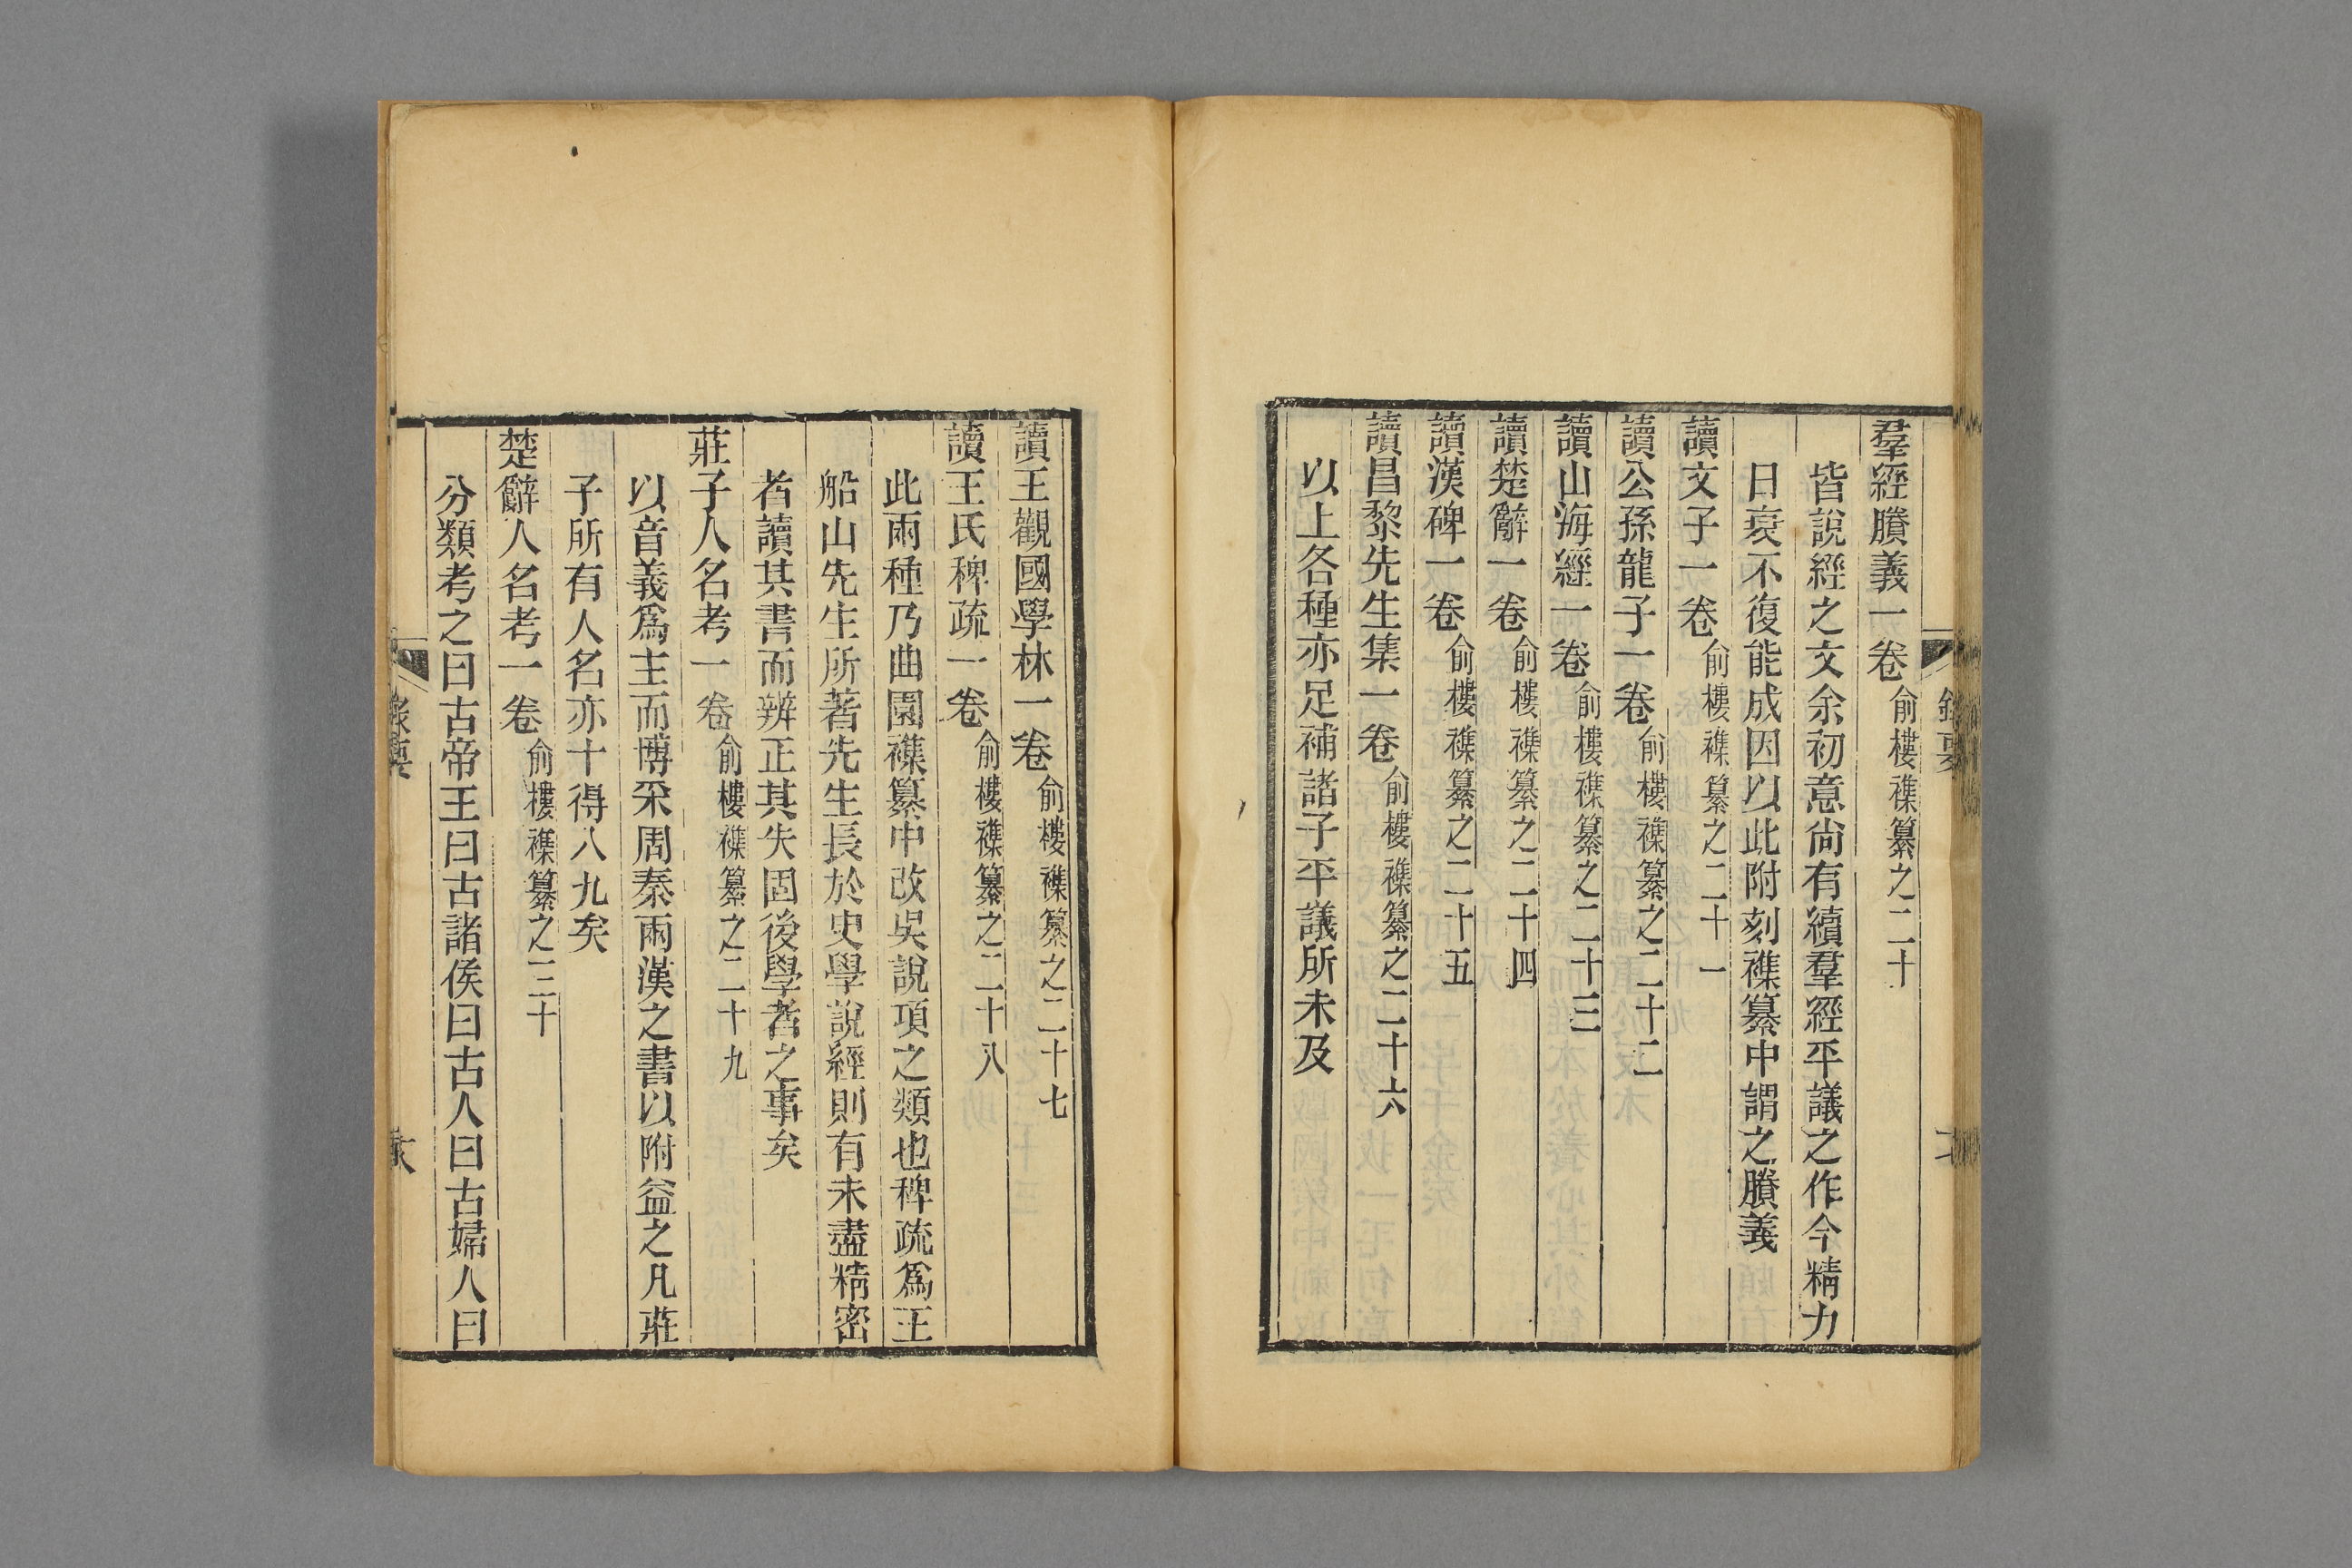 羣經賸義一卷俞樓襍纂之二十
皆說經之文余初意尙有續羣經平議之作今精力
日衰不復能成因以此附刻襍纂中謂之賸義
讀文子一卷俞樓襍纂之二十一
讀公孫龍子一卷俞樓襍纂之二十二
讀山海經一卷俞樓襍纂之二十三
讀楚辭一卷俞樓襍纂之二十四
讀漢碑一卷俞樓襍纂之二十五
讀昌黎先生集一卷俞樓襍纂之二十六
以上各種亦足補諸子平議所未及
讀王觀國學林一卷俞樓襍纂之二十七
讀王氏稗疏一卷俞樓襍纂之二十八
此兩種乃曲園襍纂中改吳說項之類也稗疏爲王
船山先生所著先生長於史學說經則有未盡精密
者讀其書而辨正其失固後學者之事矣
莊子人名考一卷俞樓襍纂之二十九
以音義爲主而博采周秦兩漢之書以附益之凡莊
子所有人名亦十得八九矣
楚辭人名考一卷俞樓襍纂之三十
分類考之曰古帝王曰古諸侯曰古人曰古婦人曰